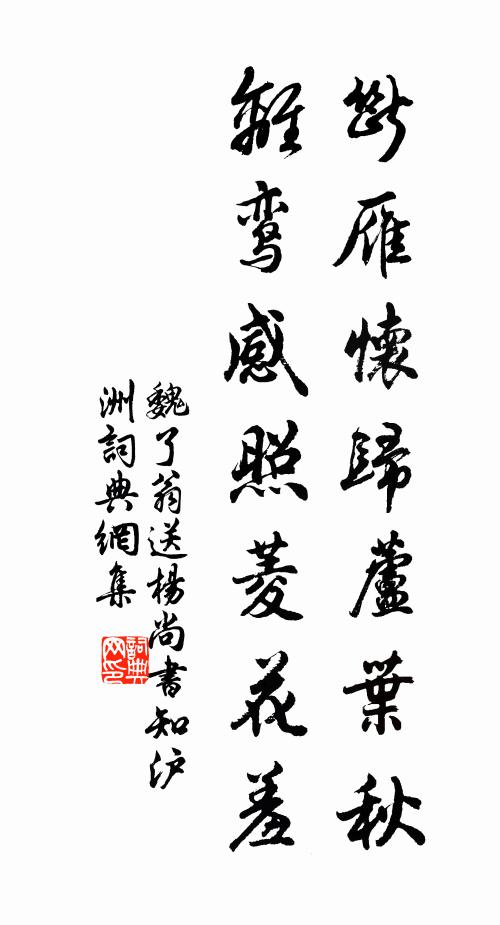 斷雁懷歸蘆葉秋
離鸞感照菱花羞
魏了翁送楊尚書知沪
洲詞典網集
詞典網印